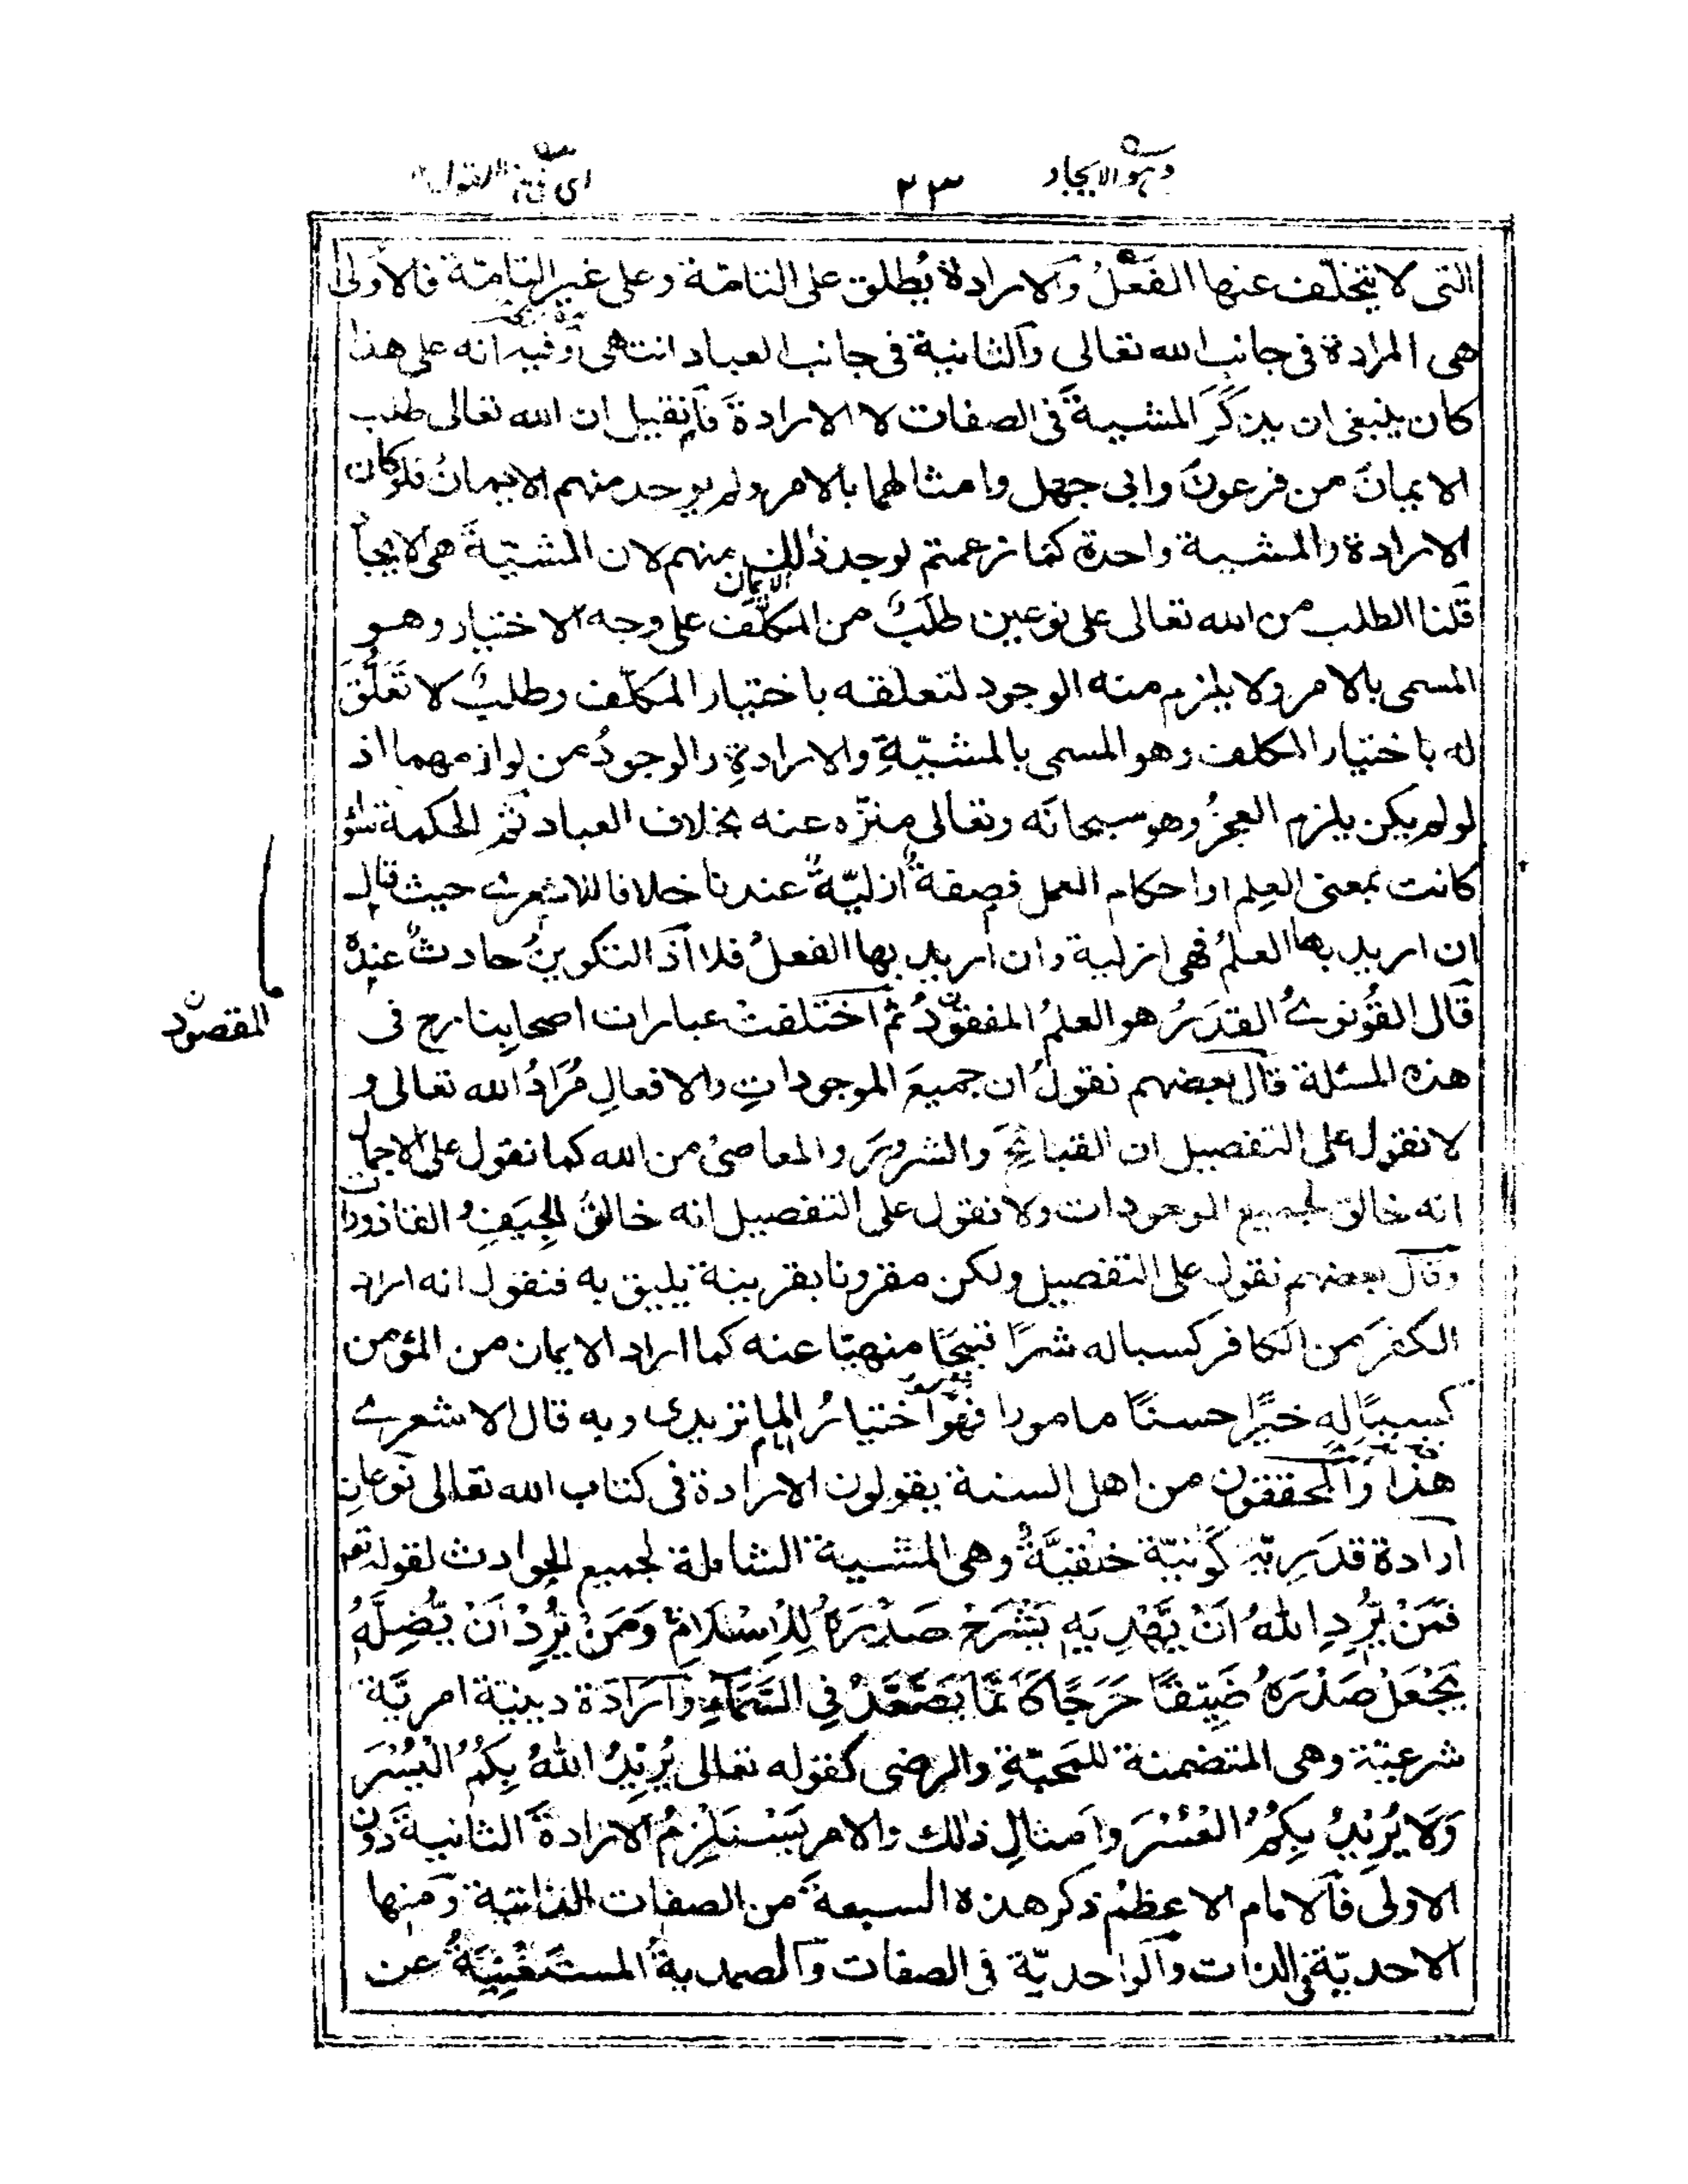 وهو الايجاد
٢٣
التى لا يتخلّف عنها الفعلُ والارادة يُطلق على التامّة وعلى غير التامّة فالاولى
هى المرادة فى جانب الله تعالى والثانية فى جانب العباد انتهى وفيه انه على هذا
كان ينبغى ان يذكرَ المشيةَ فى الصفات لا الارادةَ فان قيل ان الله تعالى طلب
الايمانَ من فرعونَ وابى جهل وامثالهما بالامر ولم يوجد منهم الايمانُ فلو كان
الارادة والمشية واحدة كما زعمتم لوجد ذلك منهم لان المشيّةَ هى الايجاد
قلنا الطلب من الله تعالى على نوعين طلبٌ من المكلَّف على وجه الاختيار وهو
الايمان
المسمى بالامر ولا يلزم منه الوجود لتعلقه باختيار المكلّف وطلبٌ لا تَعَلُّقَ
له باختيار المكلف وهو المسمى بالمشيّةِ والارادةِ والوجودُ من لوازمهما اذ
لو لم يكن يلزم العجزُ وهو سبحانَه وتعالى منزّه عنه بخلاف العباد ثم الحكمة سَوا
كانت بمعنى العِلم او احكام العمل فصفةٌ ازليّةٌ عندنا خلافا للاشعرى حيث قال
ان اريد بها العلمُ فهى ازلية وان اريد بها الفعلُ فلا اذ التكوينُ حادثٌ عنده
قال القُونوىُ القدَرُ هو العلمُ المفقودُ ثم اختلفتْ عبارات اصحابِنا رح فى
المقصود
هذه المسئلة قال بعضهم نقولُ ان جميعَ الموجوداتِ والافعالِ مُرَادُ الله تعالى و
لا نقول على التفصيل ان القبائحَ والشرورَ والمعاصىَ من الله كما نقول على الاجمال
انه خالق لجميع الموجودات ولا نقول على التفصيل انه خالقُ الجِيَفِ و القاذورات
وقال بعضهم نقول على التفصيل ولكن مقرونا بقرينة يليق به فنقول انه اراد
الكفرَ من الكافر كسبا له شرًا قبيحًا منهيّا عنه كما اراد الايمان من المؤمن
كسبًا له خيرًا حسنًا مامورا فهو اختيارُ الماتزيدى وبه قال الاشعرى
هذا والمحققون من اهل السنة يقولون الارادة فى كتاب الله تعالى نوعان
ارادة قدَرِيّة كَونيّة خلقيَّةٌ وهى المشية الشاملة لجميع الحوادث لقوله تعم
فَمَنْ يُّرِدِ اللهُ اَنْ يَّهْدِيَه يَشْرَحْ صَدْرَهٗ لِلْاِسْلَامِ وَمَنْ يُّرِدْ اَنْ يُّضِلَّهُ
يَجْعَلْ صَدْرَهُ ضَيِّقًا حَرَجًا كَاَنَّمَا يَصَّعَّدُ فِى السَّمَآءِ وارَادَة دينية امريَّة
شرعيّة وهى المتضمنة للمَحبّةِ والرضى كقوله تعالى يُرِيْدُ اللهُ بِكُمُ الْيُسْرَ
وَلَا يُرِيْدُ بِكُمُ الْعُسْرَ وامثالِ ذلك والامر يَسْتَلزِمُ الارادةَ الثانيةَ دون
الاولى فالامام الاعظمُ ذكر هذه السبعةَ من الصفات الذاتية ومنها
الاحديّة فى الذات والواحديّة فى الصفات والصمديةُ المستغنِيَةُ عن